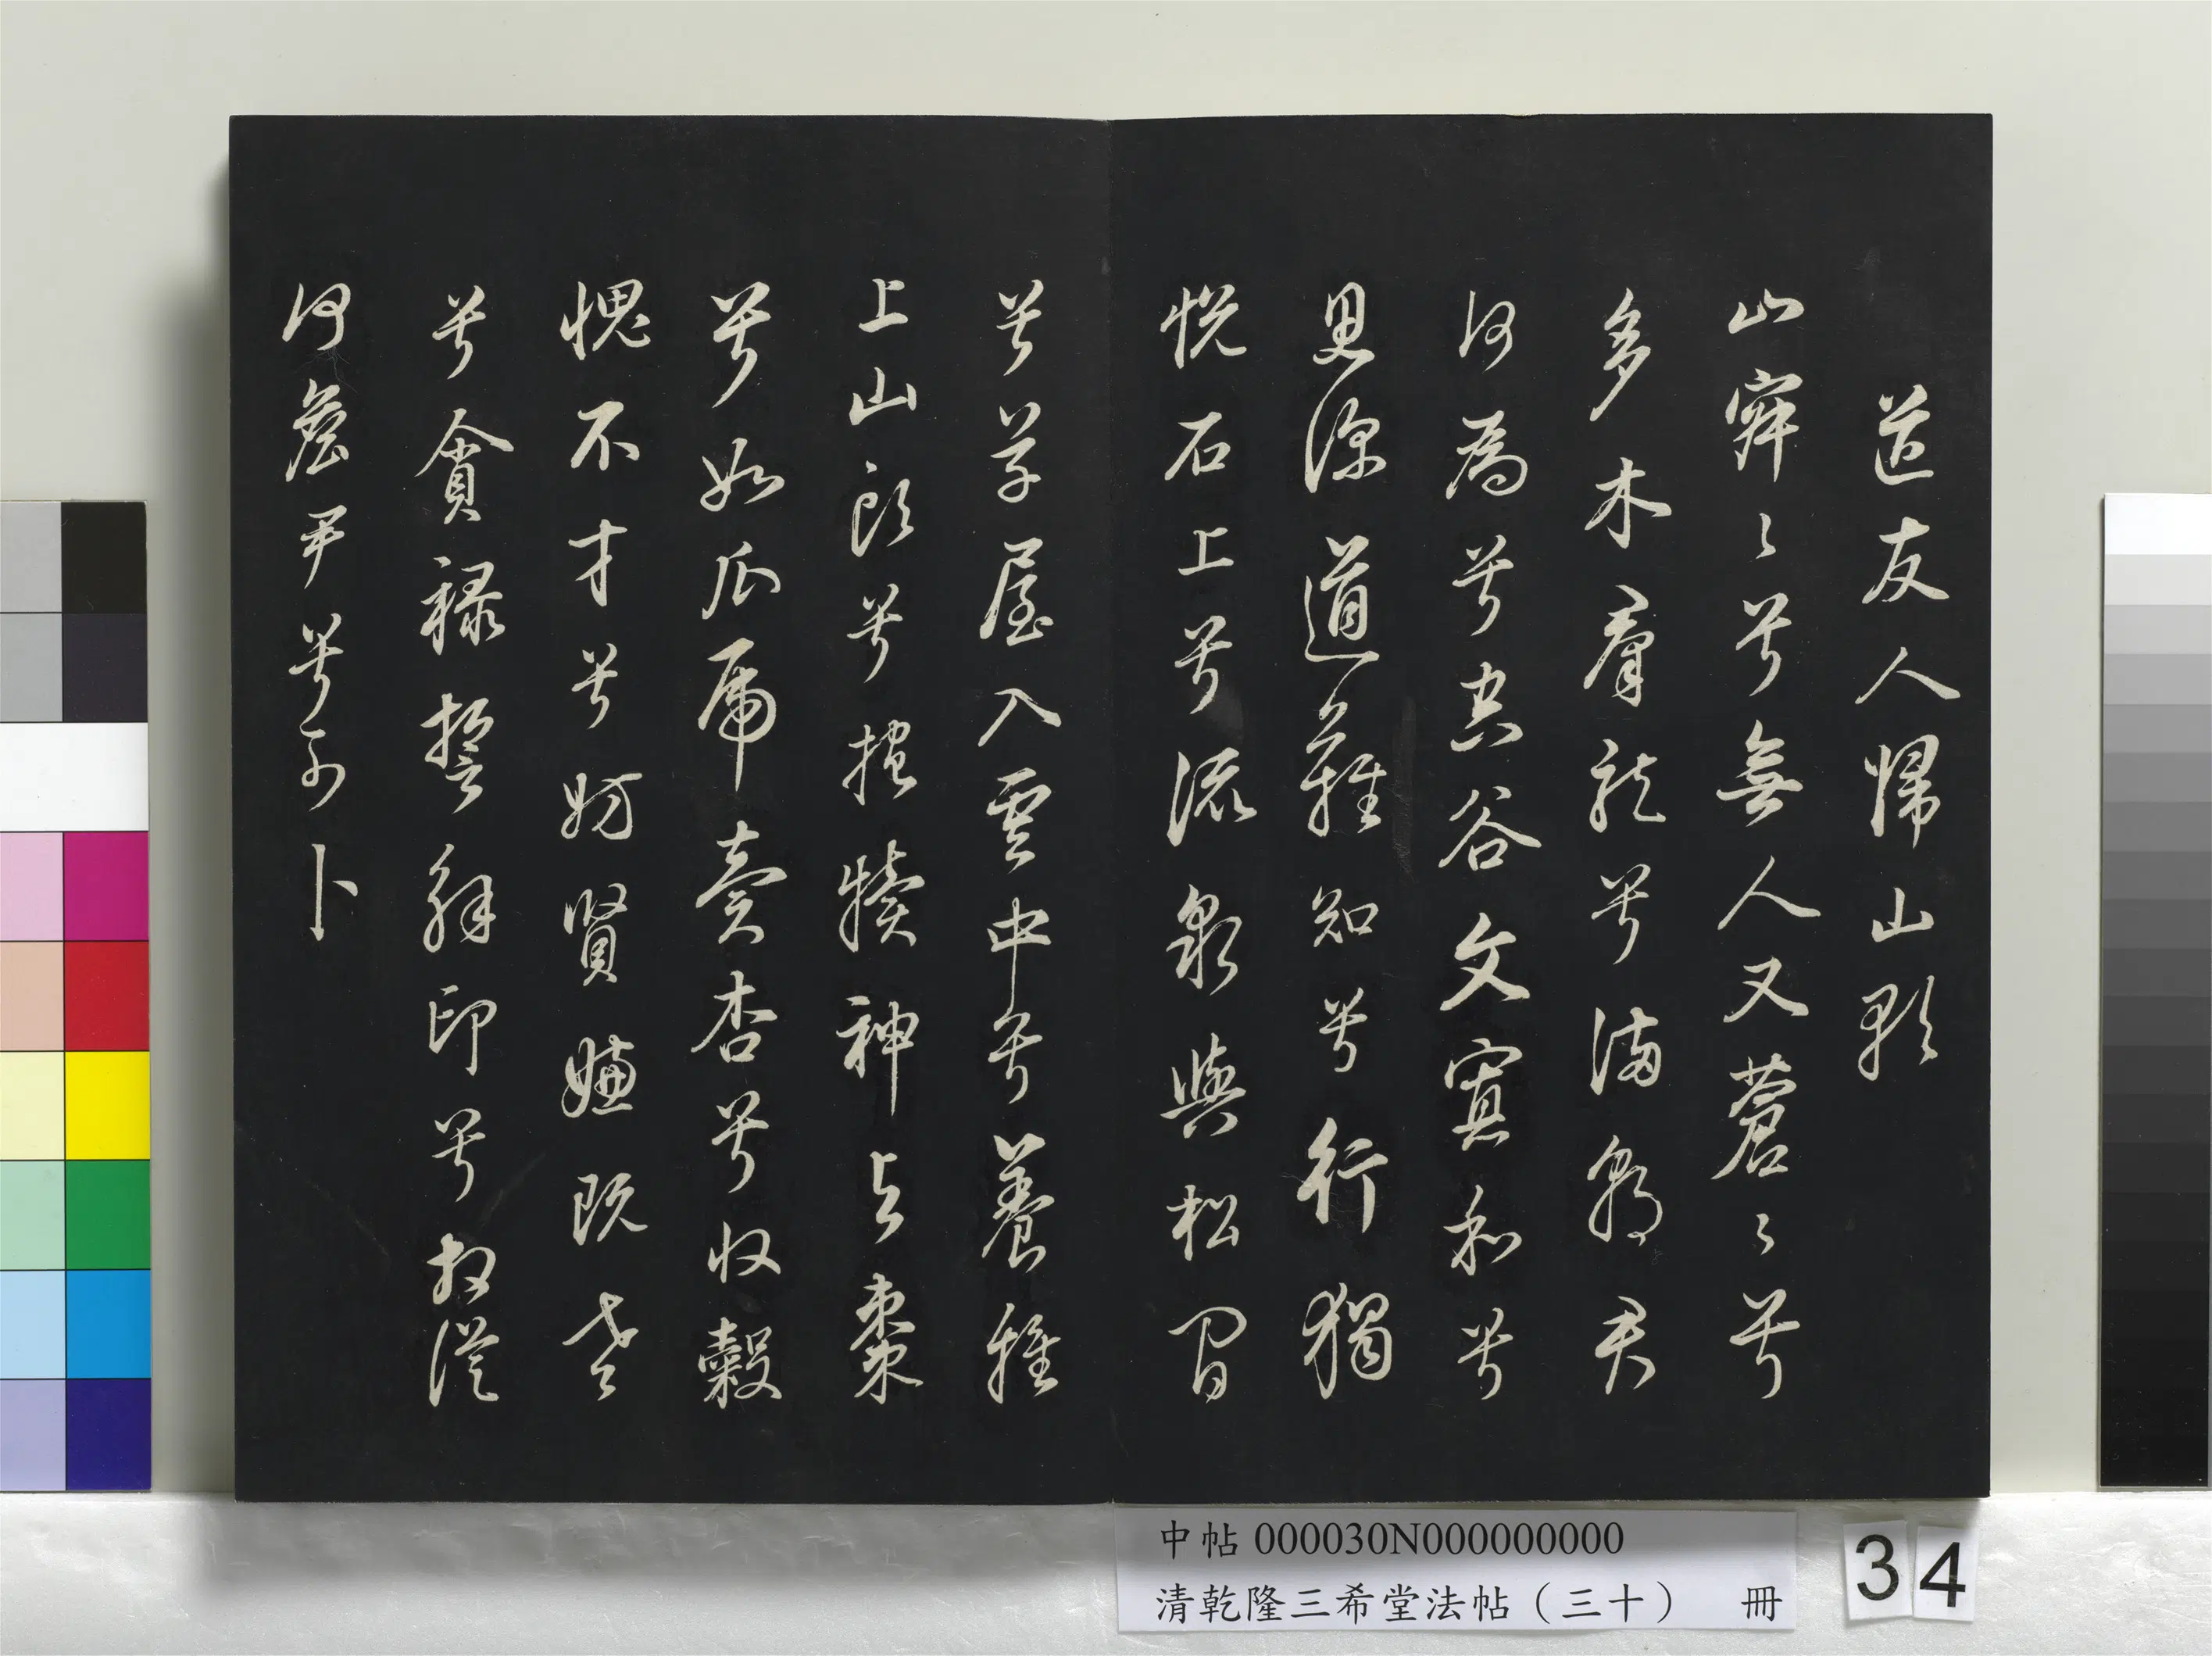 送友人歸山歌
山寂〻兮無人又蒼〻兮
多木羣龍兮滿朝君
何為兮空谷文寡和兮
思深道難知兮行獨
悅石上兮流泉與松間
兮草屋入雲中兮養雞
上山頭兮抱犢神与棗
兮如瓜虎賣杏兮收穀
愧不才兮妨賢嫌既老
兮貪祿誓解印兮相從
何詹尹兮可卜
中帖000030N000000000
清乾隆三希堂法帖（三十） 冊
34